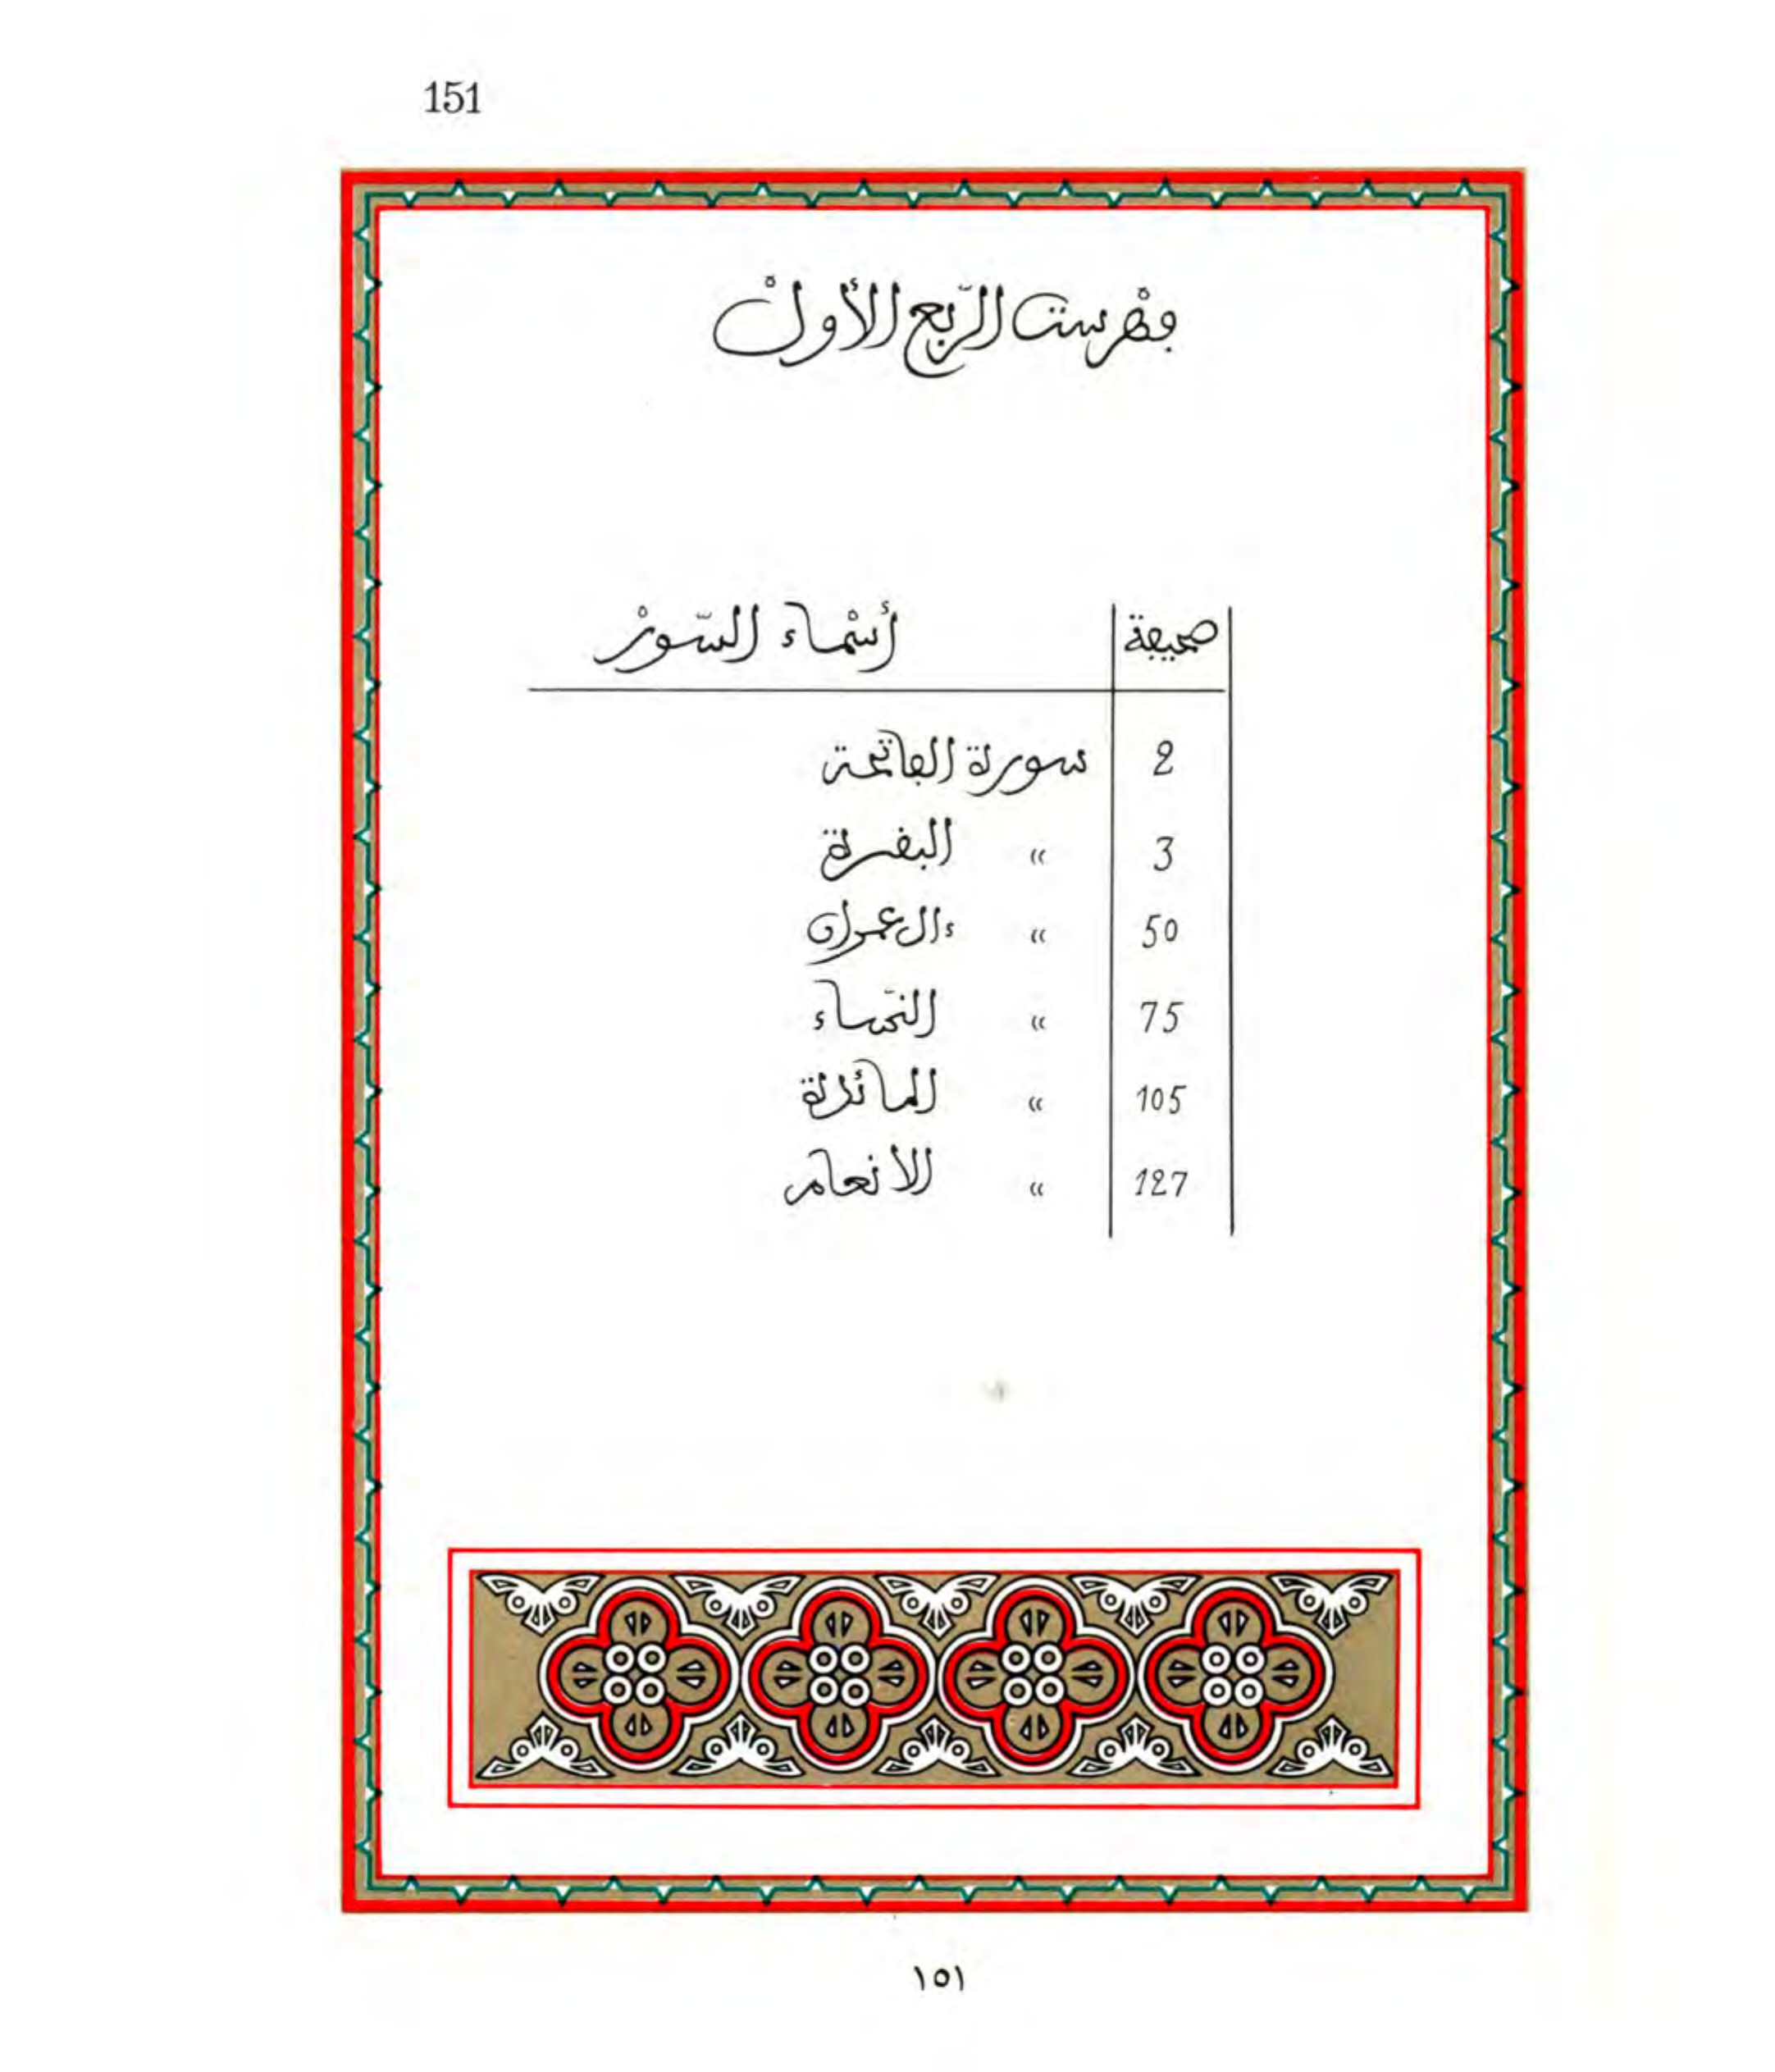 151
فهْرست الرّبع الأولْ
صحيفة أسْماء السّورْ
2 سورة الفاتحة
3 » البقرة
50 » ءال عمران
75 » النّساء
105 » المائدة
127 » الانعام
١٥١